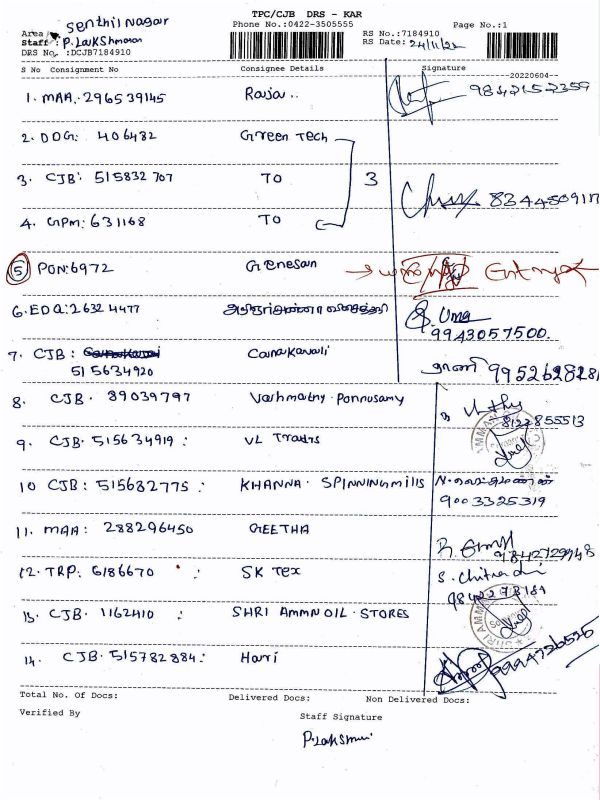 TPC/CJB DRS - KAR
Area : Senthil Nagar Phone No.:0422-3505555 Page No.:1
Staff : P. Lakshmanan RS No.:7184910
DRS No. :DCJB7184910 RS Date: 24/11/22
S No Consignment No Consignee Details Signature
20220604
1. MAA. 296539145 Raja.. 9842152359
2. DOG: 406482 Green Tech
3. CJB: 515832707 TO 3 8344509117
4. GPM: 631168 TO
5 PON: 6972 Genesan
6. EDQ: 26324477 Uma
9943057500.
7. CJB: Canakavali ராணி 9952628281
515634920
8. CJB. 39039797 Vashmathy. Ponnusamy 8122855513
9. CJB. 515634919: VL Traders
10 CJB: 515682775: KHANNA. SPINNINGMILLS
9003325319
11. MAA: 288296450 GEETHA 9842729948
12. TRP: 6186670 : SK Tex S. Chitradevi
13. CJB. 1162410 : SHRI AMMN OIL. STORES
14. CJB. 515782884: Hari 9994726526
Total No. Of Docs: Delivered Docs: Non Delivered Docs:
Verified By Staff Signature
P. Lakshmi